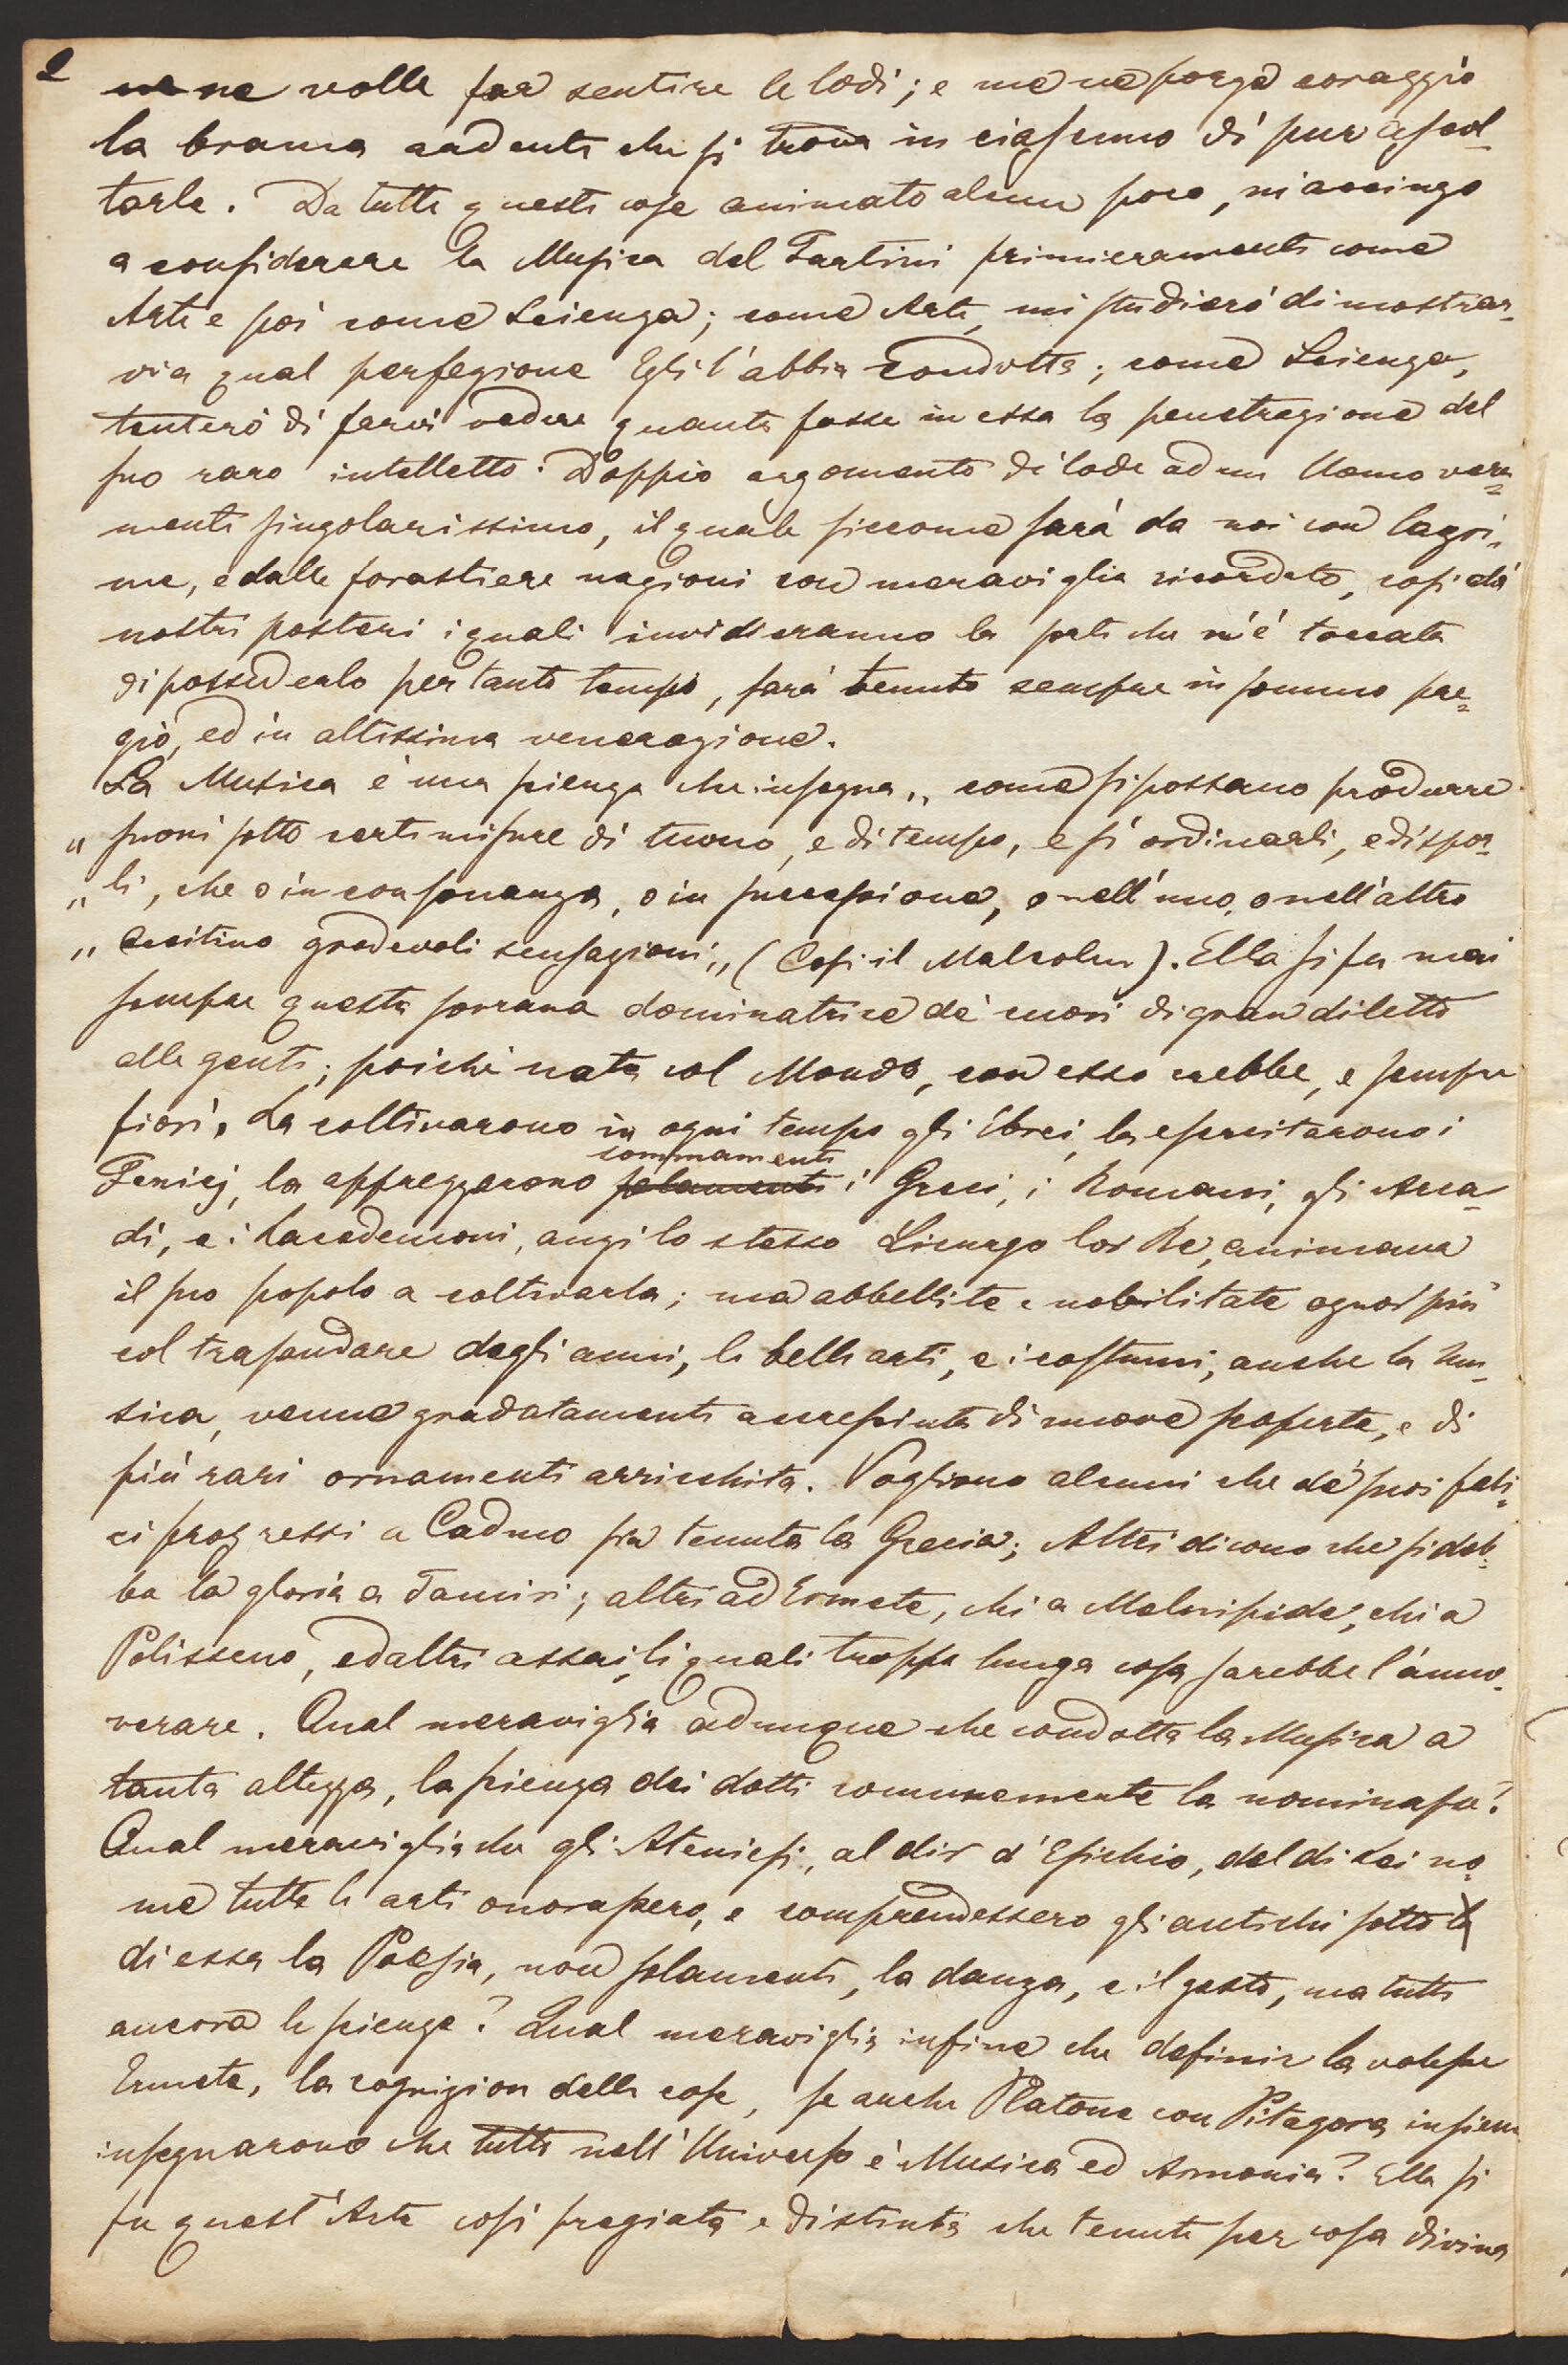 2
ne volle far sentire le lodi; e me ne porge coraggio
la brama ardente che si trova in ciascuno di pur ascol-
tarle. Da tutte queste cose animato alcun poco, m'accingo
a considerare la Musica del Tartini primieramente come
Arte e poi come Scienza; come Arte, mi studierò di mostrar-
vi a qual perfezione Egli l'abbia condotta; come Scienza,
tenterò di farvi vedere quanta fosse in essa la penetrazione del
suo raro intelletto. Doppio argomento di lode ad un Uomo vera=
mente singolarissimo, il quale siccome sarà da noi con lagri-
me, e dalle forastiere nazioni con meraviglia ricordato, così da'
nostri posteri i quali invidieranno la sorte che n'è toccata
di possederlo per tanto tempo, sarà tenuto sempre in sommo pre=
gio, ed in altissima venerazione.
La Musica è una scienza che insegna „ come si possano produrre
„ suoni sotto certe misure di tuono, e di tempo, e sì ordinarli, e dispor-
„ li, che o in consonanza, o in successione, o nell'uno, o nell'altro
„ eccitino gradevoli sensazioni „ (Così il Malcolm). Ella si fu mai
sempre questa sovrana dominatrice de' cuori di gran diletto
alle genti; poichè nata col Mondo, con esso crebbe, e sempre
fiorì. La coltivarono in ogni tempo gli Ebrei, la esercitarono i
sommamente
Fenicj, la apprezzarono solamente i Greci, i Romani, gli Arca-
di, e i Lacedemoni, anzi lo stesso Licurgo lor Re, animava
il suo popolo a coltivarla; ma abbellite e nobilitate ognor più
col trasandare degli anni, le belle arti, e i costumi, anche la Mu-
sica, venne gradatamente accresciuta di nuove scoperte, e di
più rari ornamenti arricchita. Vogliono alcuni che de' suoi feli=
ci progressi a Cadmo sia tenuta la Grecia; Altri dicono che si deb-
ba la gloria a Tamiri; altri ad Ermete, chi a Melnipide, chi a
Polisseno, ed altri assai, li quali troppo lunga cosa sarebbe l'anno-
verare. Qual meraviglia adunque che condotta la Musica a
tanta altezza, la scienza dei dotti comunemente la nominasse?
Qual meraviglia che gli Ateniesi, al dir d'Esichio, del di Lei no-
me tutte le arti onorassero, e comprendessero gli antichi sotto
di essa la Poesia, non solamente, la danza, e il gesto, ma tutte
ancora le scienze? Qual meraviglia infine che definir la volesse
Ermete, la cognizion delle cose, se anche Platone con Pitagora insiem
insegnarono che tutto nell'Universo è Musica ed Armonia? Ella si
fu quest'Arte così pregiata e distinta che tenuta per cosa divina